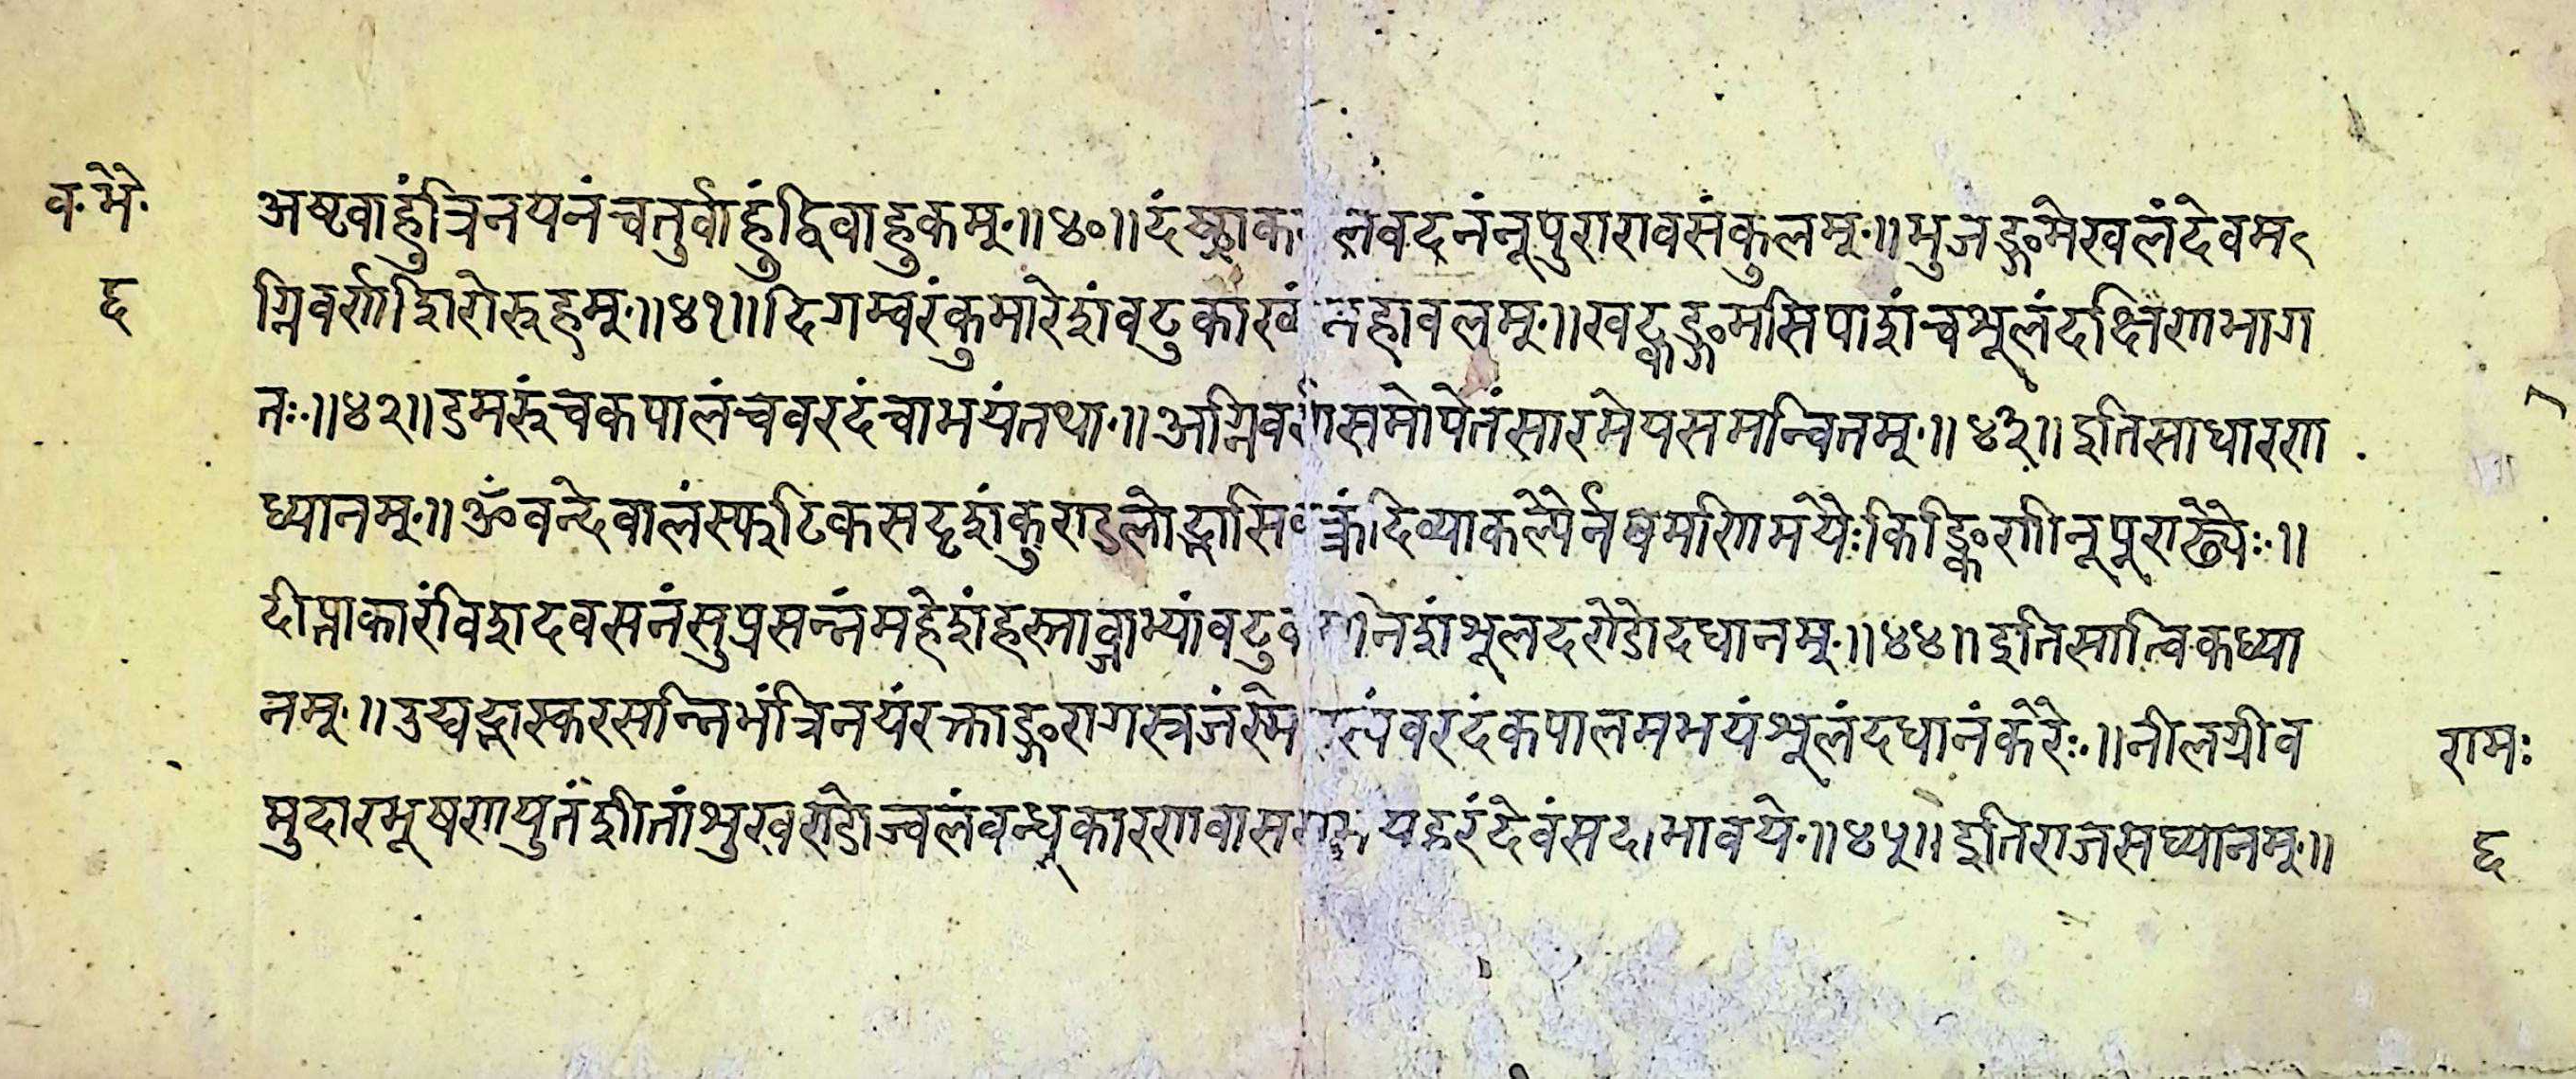 व॰भै॰
६
अष्टवाहुंत्रिनयनंचतुर्वाहुंद्विवाहुकम्॰॥४०॥दंष्ट्राक लवदनंनूपुरारावसंकुलम्॰॥भुजङ्गमेखलंदेवम
ग्निवर्णशिरोरुहम्॰॥४१॥दिगम्वरंकुमारेशंवटुकाख्यं महावलम्॰॥खट्वाङ्गमसिपाशंचशूलंदक्षिणभाग
तः॰॥४२॥डमरुंचकपालंचवरदंचाभयंतथा॰॥अग्निवर्णसमोपेतंसारमेयसमन्वितम्॰॥४३॥इतिसाधारण
ध्यानम्॰॥ॐवन्देवालंस्फटिकसदृशंकुण्डलोद्भासिवक्त्रंदिव्याकल्पैर्नवमणिमयैःकिङ्किणीनूपूराढ्यैः॰॥
दीप्ताकारंविशदवसनंसुप्रसन्नंमहेशंहस्ताव्जाभ्यांवटु निशंशूलदण्डोदधानम्॰॥४४॥इतिसात्विकध्या
नम्॰॥उद्यद्भास्करसन्निभंत्रिनयंरक्ताङ्गरागस्रजंस्मे स्यंवरदंकपालमभयंशूलंदधानंकरैः॰॥नीलग्रीव
मुदारभूषणयुतंशीतांशुखण्डोज्वलंवन्धूकारणवास यहरंदेवंसदाभावये॰॥४५॥इतिराजसध्यानम्॰॥
रामः
६